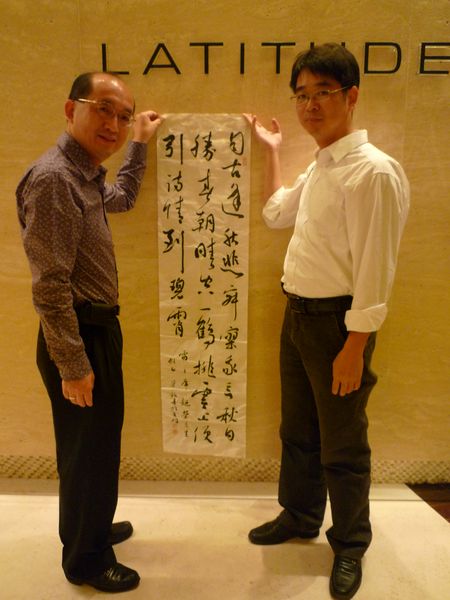 LATITUDE
自古逢秋悲寂寥我言秋日
勝春朝晴空一鶴排雲上便
引詩情到碧霄